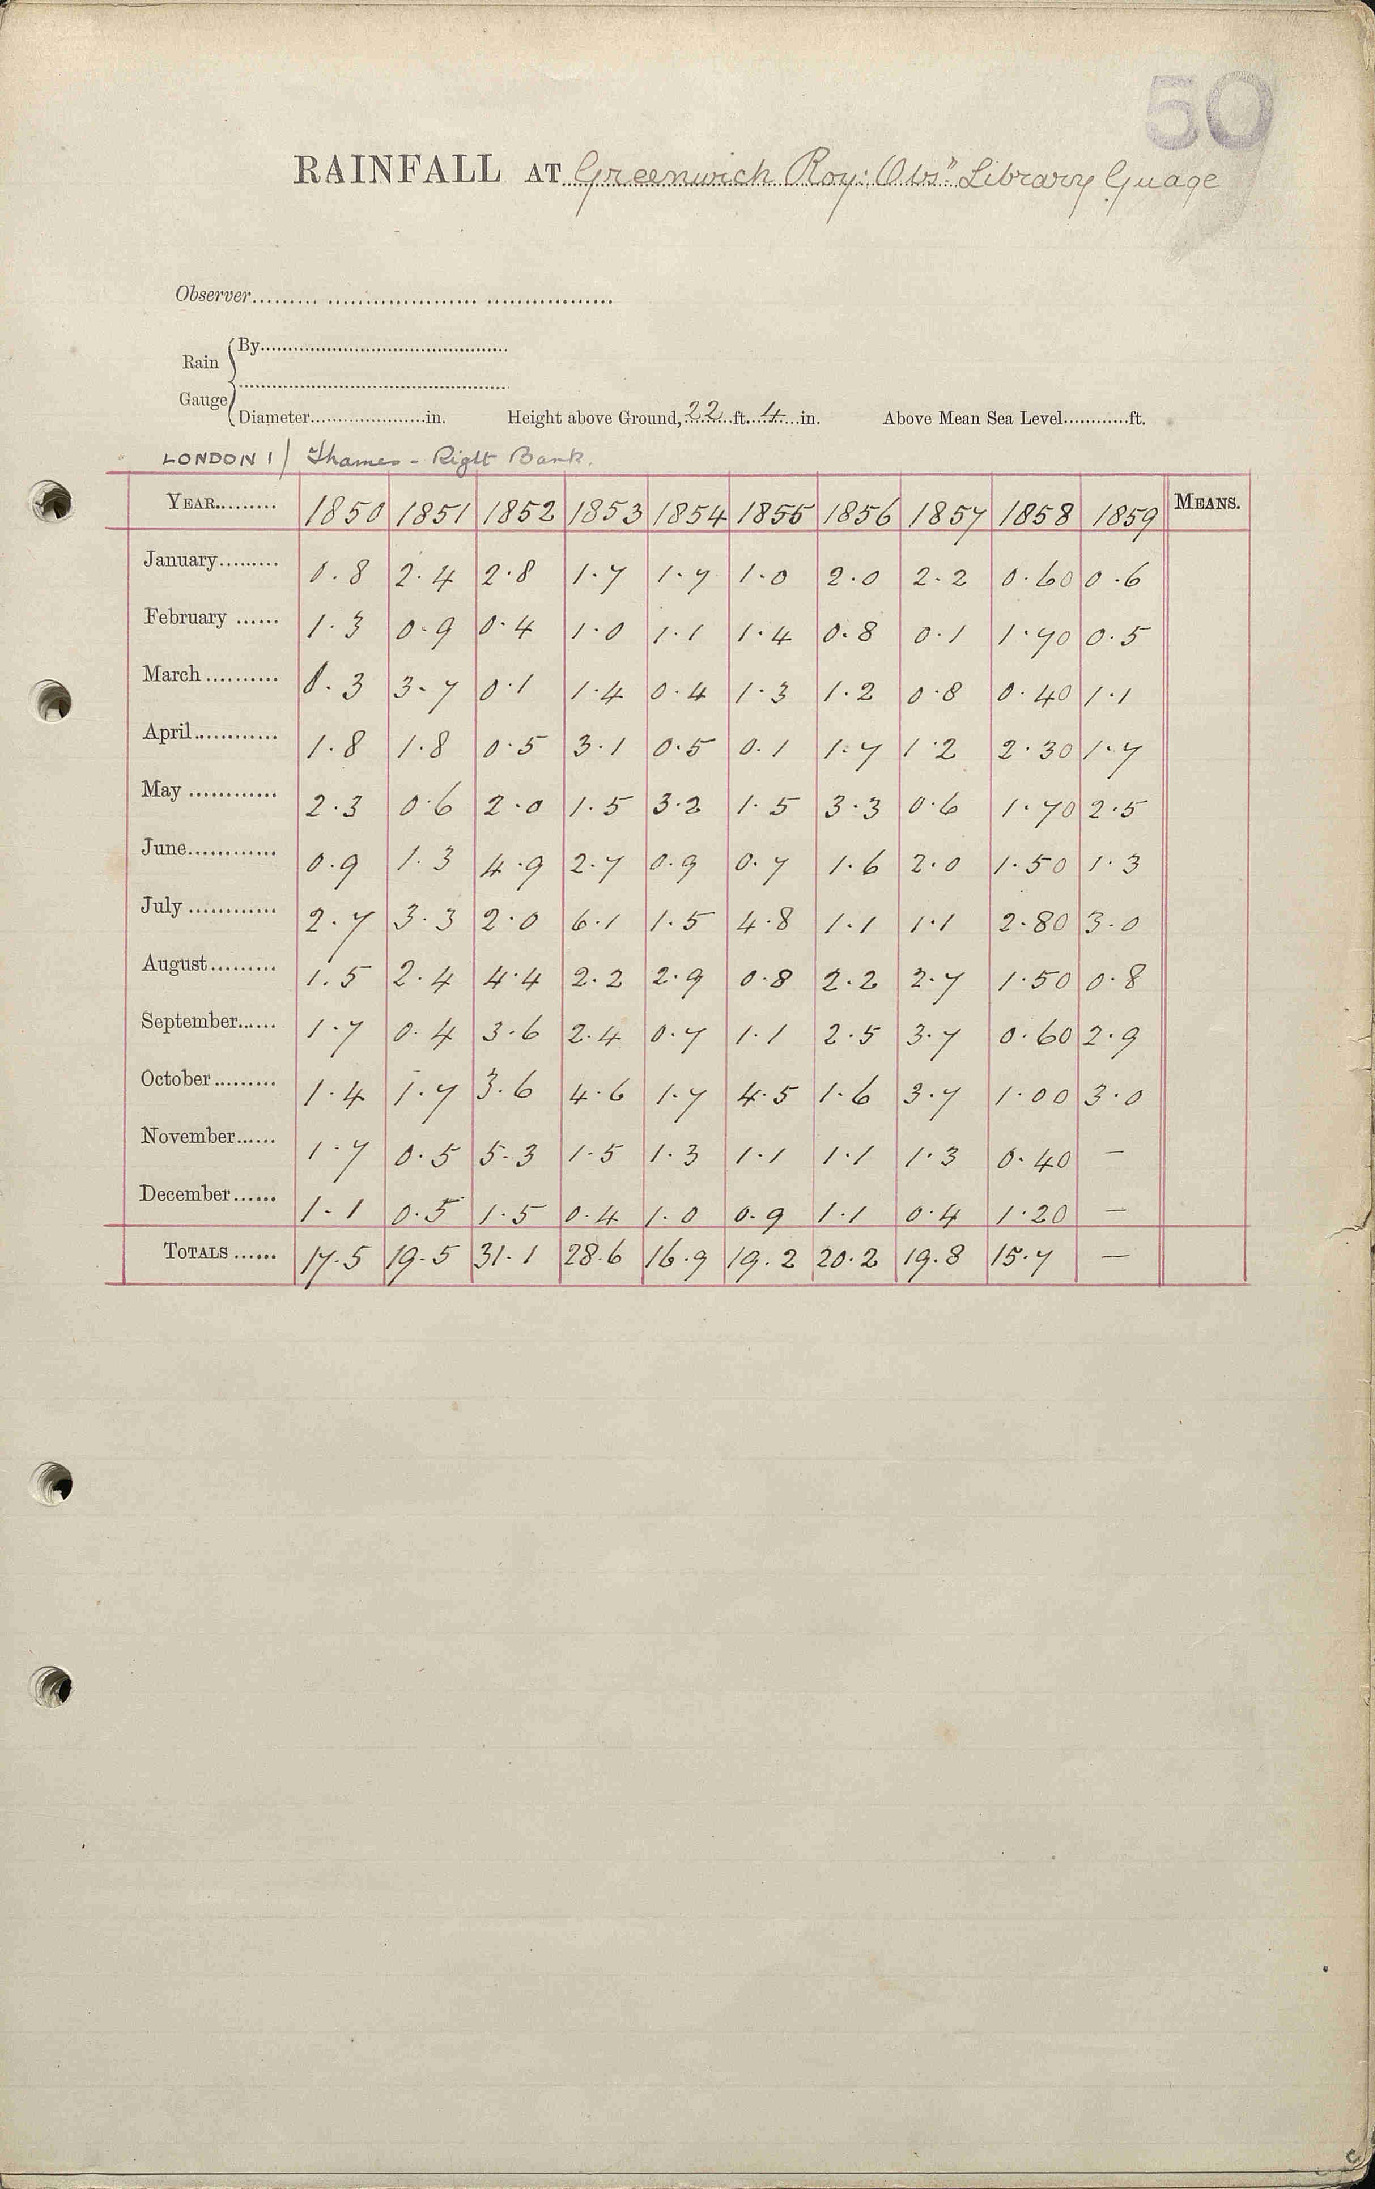 50
RAINFALL AT Greenwich Roy: Obsy Library Guage
Observer
Rain Gauge
By
Diameter in. Height above Ground, 22 ft. 4 in. Above Mean Sea Level ft.
LONDON 1/ Thames - Right Bank.
YEAR 1850 1851 1852 1853 1854 1855 1856 1857 1858 1859 MEANS.
January 0.8 2.4 2.8 1.7 1.7 1.0 2.0 2.2 0.60 0.6
February 1.3 0.9 0.4 1.0 1.1 1.4 0.8 0.1 1.70 0.5
March 0.3 3.7 0.1 1.4 0.4 1.3 1.2 0.8 0.40 1.1
April 1.8 1.8 0.5 3.1 0.5 0.1 1.7 1.2 2.30 1.7
May 2.3 0.6 2.0 1.5 3.2 1.5 3.3 0.6 1.70 2.5
June 0.9 1.3 4.9 2.7 0.9 0.7 1.6 2.0 1.50 1.3
July 2.7 3.3 2.0 6.1 1.5 4.8 1.1 1.1 2.80 3.0
August 1.5 2.4 4.4 2.2 2.9 0.8 2.2 2.7 1.50 0.8
September 1.7 0.4 3.6 2.4 0.7 1.1 2.5 3.7 0.60 2.9
October 1.4 1.7 3.6 4.6 1.7 4.5 1.6 3.7 1.00 3.0
November 1.7 0.5 5.3 1.5 1.3 1.1 1.1 1.3 0.40 —
December 1.1 0.5 1.5 0.4 1.0 0.9 1.1 0.4 1.20 —
TOTALS 17.5 19.5 31.1 28.6 16.9 19.2 20.2 19.8 15.7 —